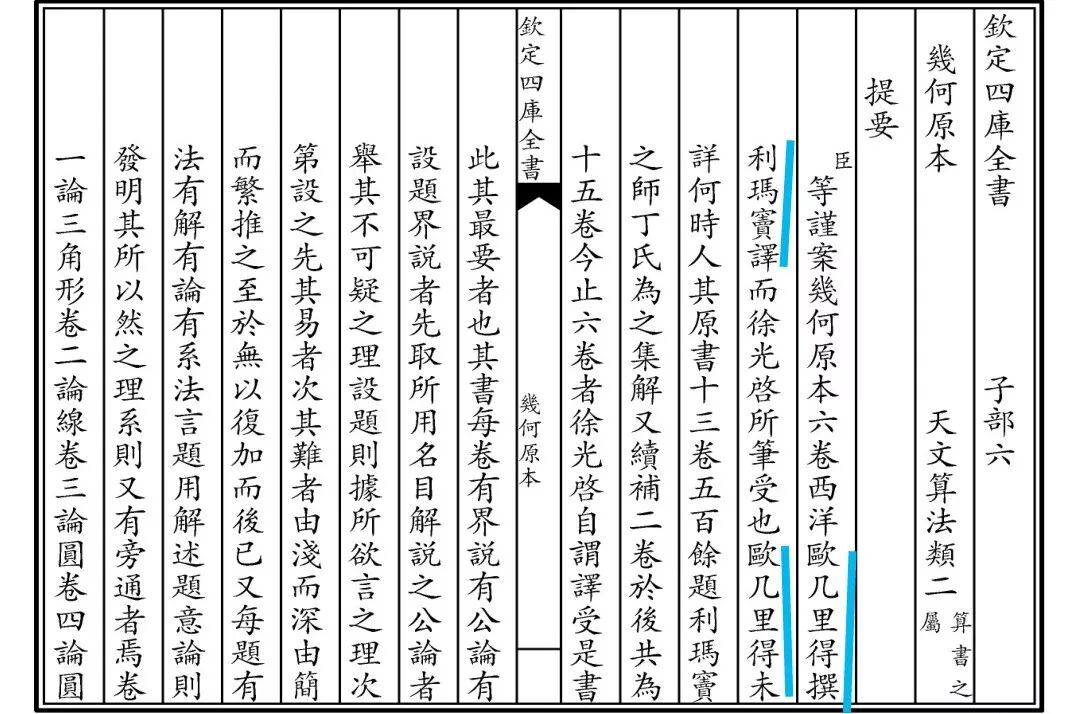 欽定四庫全書 子部六
幾何原本 天文算法類二 算書之屬
提要
臣等謹案幾何原本六卷西洋歐几里得撰
利瑪竇譯而徐光啓所筆受也歐几里得未
詳何時人其原書十三卷五百餘題利瑪竇
之師丁氏為之集解又續補二卷於後共為
十五卷今止六卷者徐光啓自謂譯受是書
欽定四庫全書 幾何原本
此其最要者也其書每卷有界説有公論有
設題界説者先取所用名目解説之公論者
舉其不可疑之理設題則據所欲言之理次
第設之先其易者次其難者由淺而深由簡
而繁推之至於無以復加而後已又每題有
法有解有論有系法言題用解述題意論則
發明其所以然之理系則又有旁通者焉卷
一論三角形卷二論線卷三論圓卷四論圓